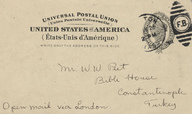 UNIVERSAL POSTAL UNION
(Union Postale Universelle)
UNITED STATES OF AMERICA
(États-Unis d'Amérique)
F.B
Mr. W. W. Peet
Bible House
Constantinople
Turkey
Open mail via London